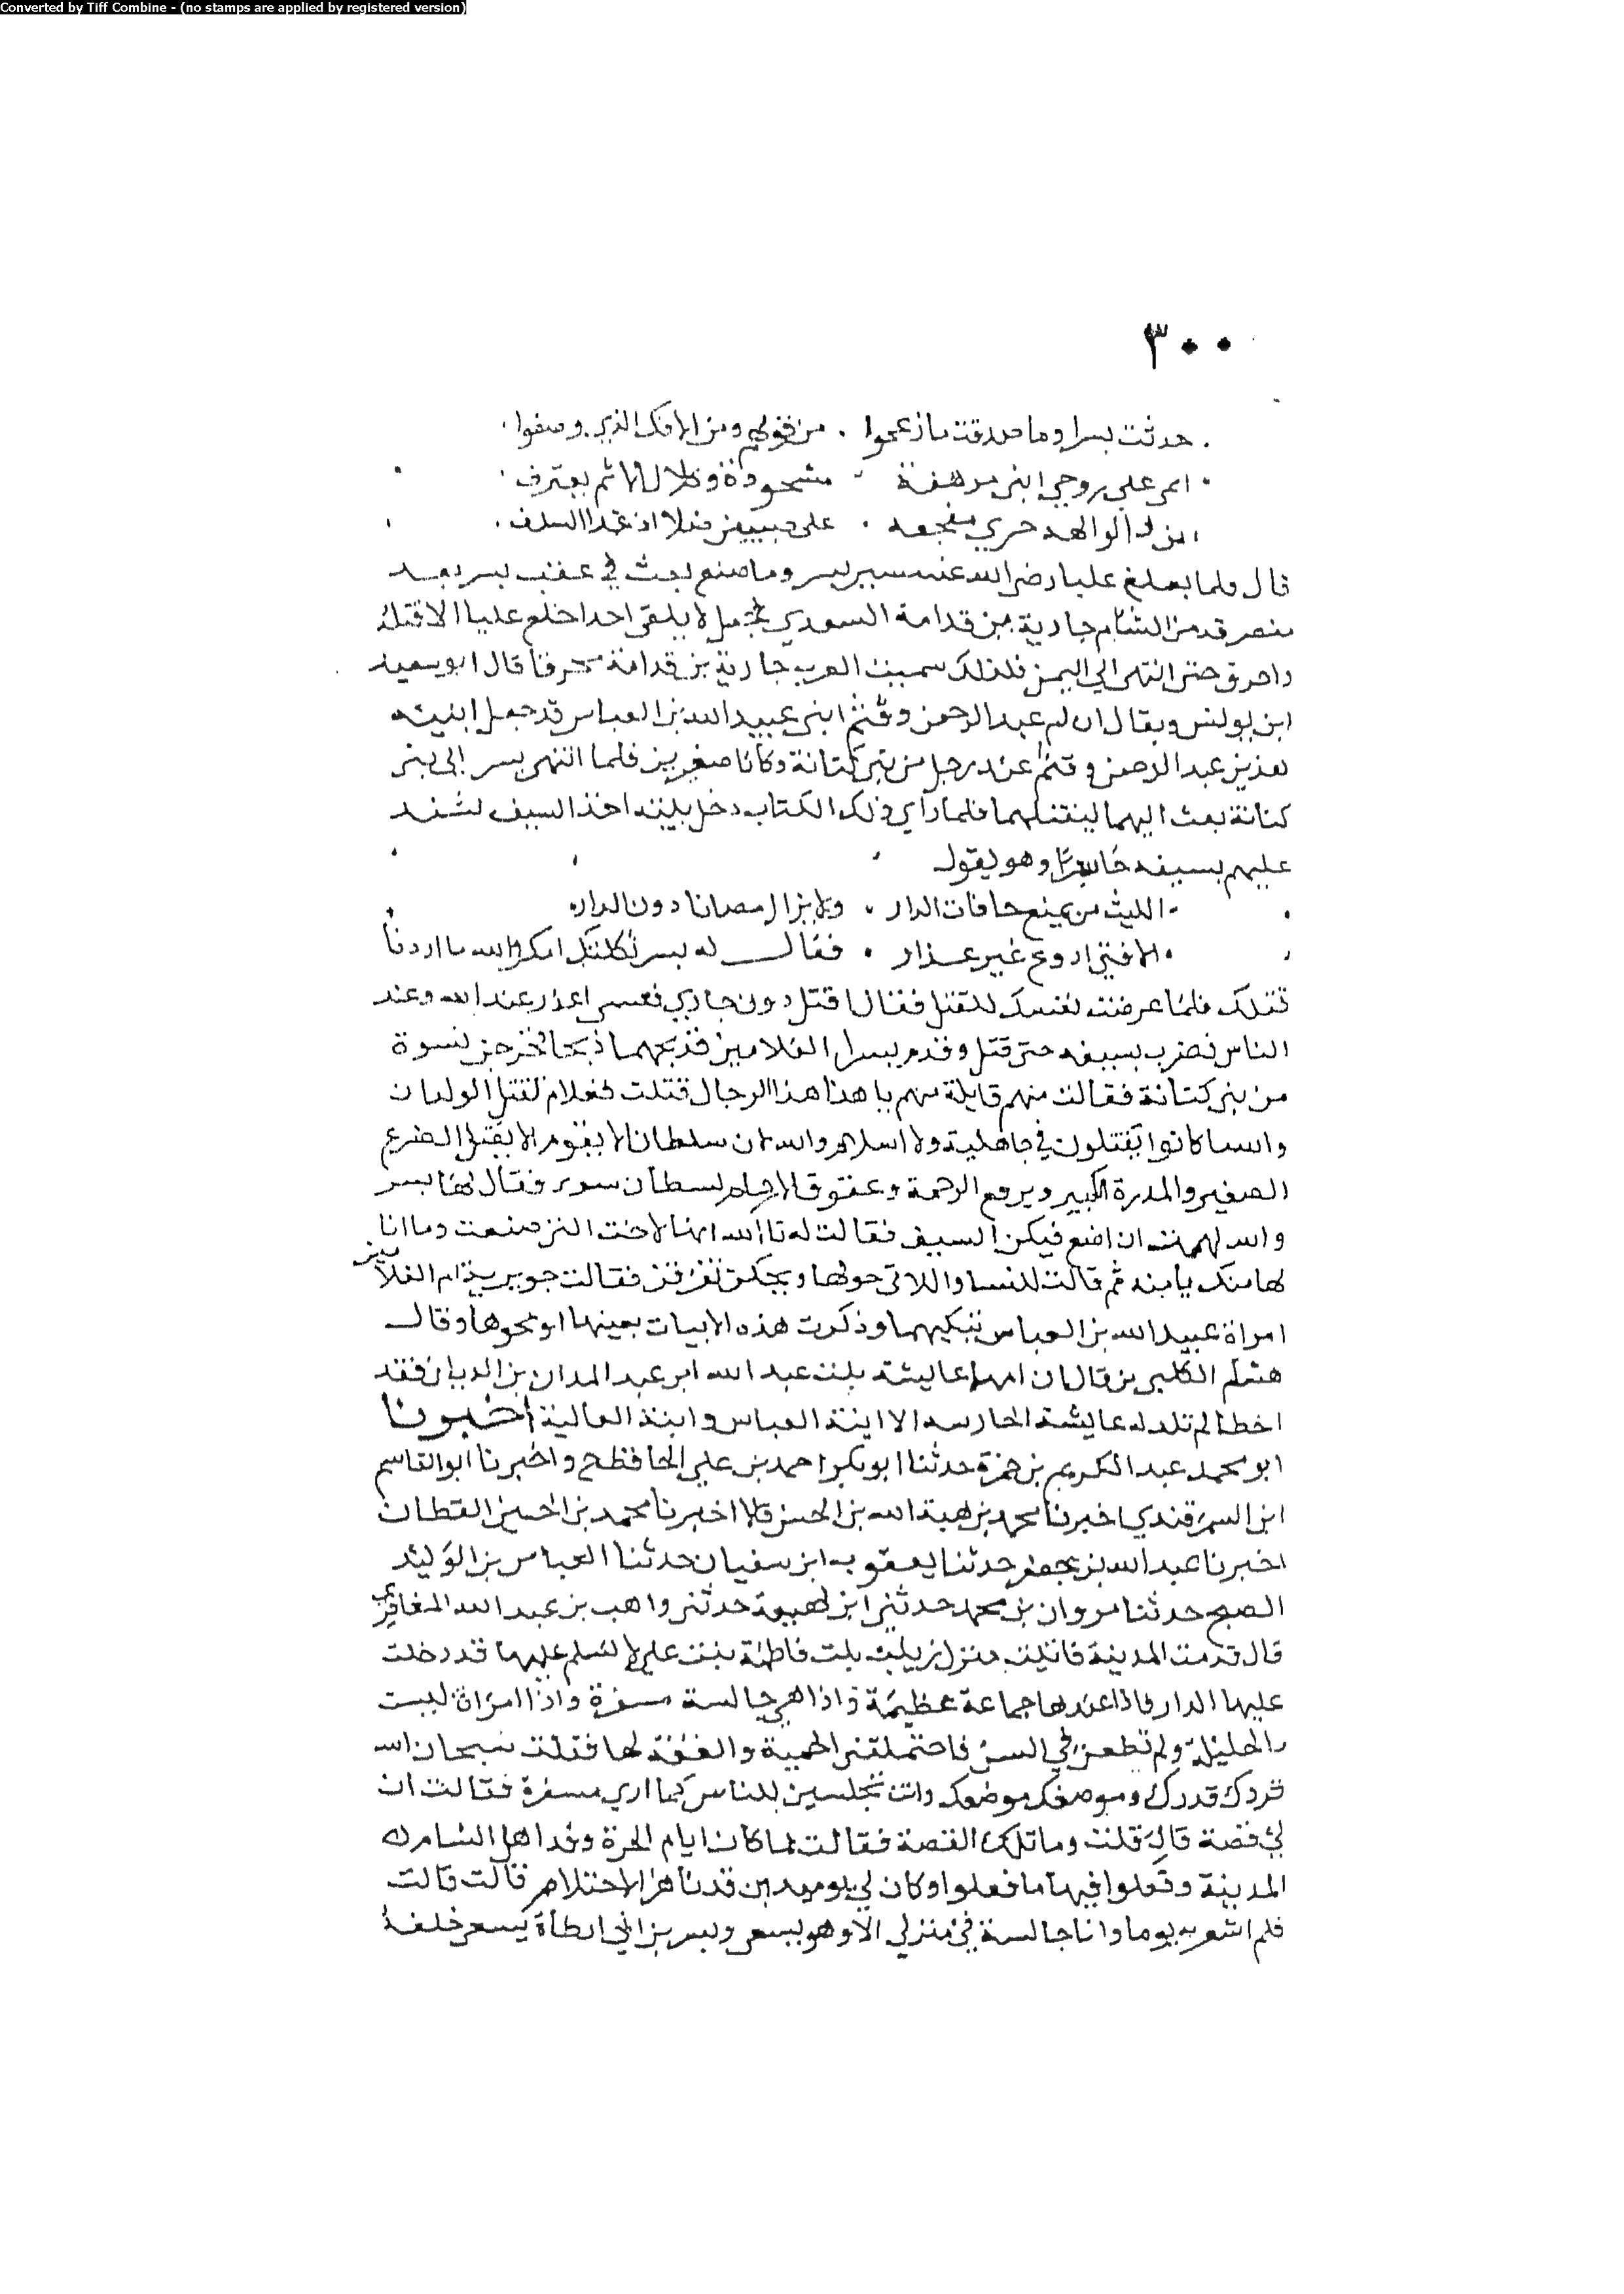 Converted by Tiff Combine - (no stamps are applied by registered version)
٣٠٠
حدثت بسرا وما صدقت ما زعموا . من قولهم ومن الافك الذي وصفوا
انحى علي ودجي ابني مرهفة مشحوذة وكذلك الاثم يعترف
من دل والهة حرى مفجعة . على صبيين ضلا اذ غدا السلف
قال ولما بلغ عليا رضي الله عنه سير بسر وما صنع بعث في عقب بسر بعد
منصرفه من الشام جارية بن قدامة السعدي فجعل لا يلقى احدا خلع عليا الا قتله
واحرق حتى انتهى الي اليمن فلذلك سميت العرب جارية بن قدامة محرقا قال ابو سعيد
ابن يونس ويقال ان ام عبد الرحمن وقثم ابني عبيد الله بن العباس قد جعل ابنيه
هذين عبد الرحمن وقثم عند رجل من بني كنانة وكانا صغيرين فلما انتهى بسر إلى بني
كنانة بعث اليهما ليقتلهما فلما راي ذلك الكتاب دخل بيته اخذ السيف فشد
عليهم بسيفه حاسرا وهو يقول
الليث من يمنع حافات الدار . ولا يزال مصلتا دون الدار
الا فتى اروع غير غدار . فقال له بسر ثكلتك امك والله ما اردنا
قتلك فلما عرضت نفسك للقتل فقال اقتل دون جاري فعسى اعذر عند الله وعند
الناس فضرب بسيفه حتى قتل وقدم بسر الغلامين فذبحهما ذبحا فخرجن نسوة
من بني كنانة فقالت منهم قايلة منهم يا هذا هذا الرجال قتلت فعلام تقتل الولدان
والله ما كانوا يقتلون في جاهلية ولا اسلام والله ان سلطان لا يقوم الا بقتل الضرع
الصغير والمدرة الكبير ويرفع الرحمة وعقوق الارحام لسلطان سوء فقال لها بسر
والله لهممت ان اضع فيكن السيف فقالت له تا الله انها لاخت التي صنعت وما انا
لها منك يا منه ثم قالت للنسا واللاتي حولها ويحكن تفرقن فقالت جويرية ام الغلامين
امراة عبيد الله بن العباس تبكيهما وذكرت هذه الابيات بعينها او نحوها وقال
هشام الكلبي من قال ان امها عايشة بنت عبد الله ابن عبد المدان بن الديان فقد
اخطا لم تلد له عايشة الحارسه الا ابنه العباس وابنة العالية اخبرنا
ابو محمد عبد الكريم بن حمزة حدثنا ابو بكر احمد بن علي الحافظ ح واخبرنا ابو القاسم
ابن السمرقندي اخبرنا محمد بن هبة الله بن الحسن قالا اخبرنا محمد بن الحسين القطان
اخبرنا عبد الله بن جعفر حدثنا يعقوب ابن سفيان حدثنا العباس بن الوليد
الصبح حدثنا مروان بن محمد حدثني ابن لهيعة حدثني واهب بن عبد الله المغافري
قال قدمت المدينة فاتيت منزل زينب بنت فاطمة بنت علي لاسلم عليها قد دخلت
عليها الدار فاذا عندها جماعة عظيمة واذا هي جالسة مسفرة واذا امراة ليست
بالجليلة ولم تطعن في السن فاحتملتني الحمية والغضب لها فقلت سبحان الله
قدرك قدرك وموضعك موضعك وانت تجلسين للناس كما اري مسفرة فقالت ان
لي قصة قال قلت وما تلك القصة فقالت لما كان ايام الحرة وفد اهل الشام
المدينة وفعلوا فيها ما فعلوا وكان لي يومىد ابن قد ناهز الاحتلام قالت قالت
فلم اشعر به يوما وانا جالسة في منزلي الا وهو يسعى وبسر بن ابي ارطاة يسعى خلفه